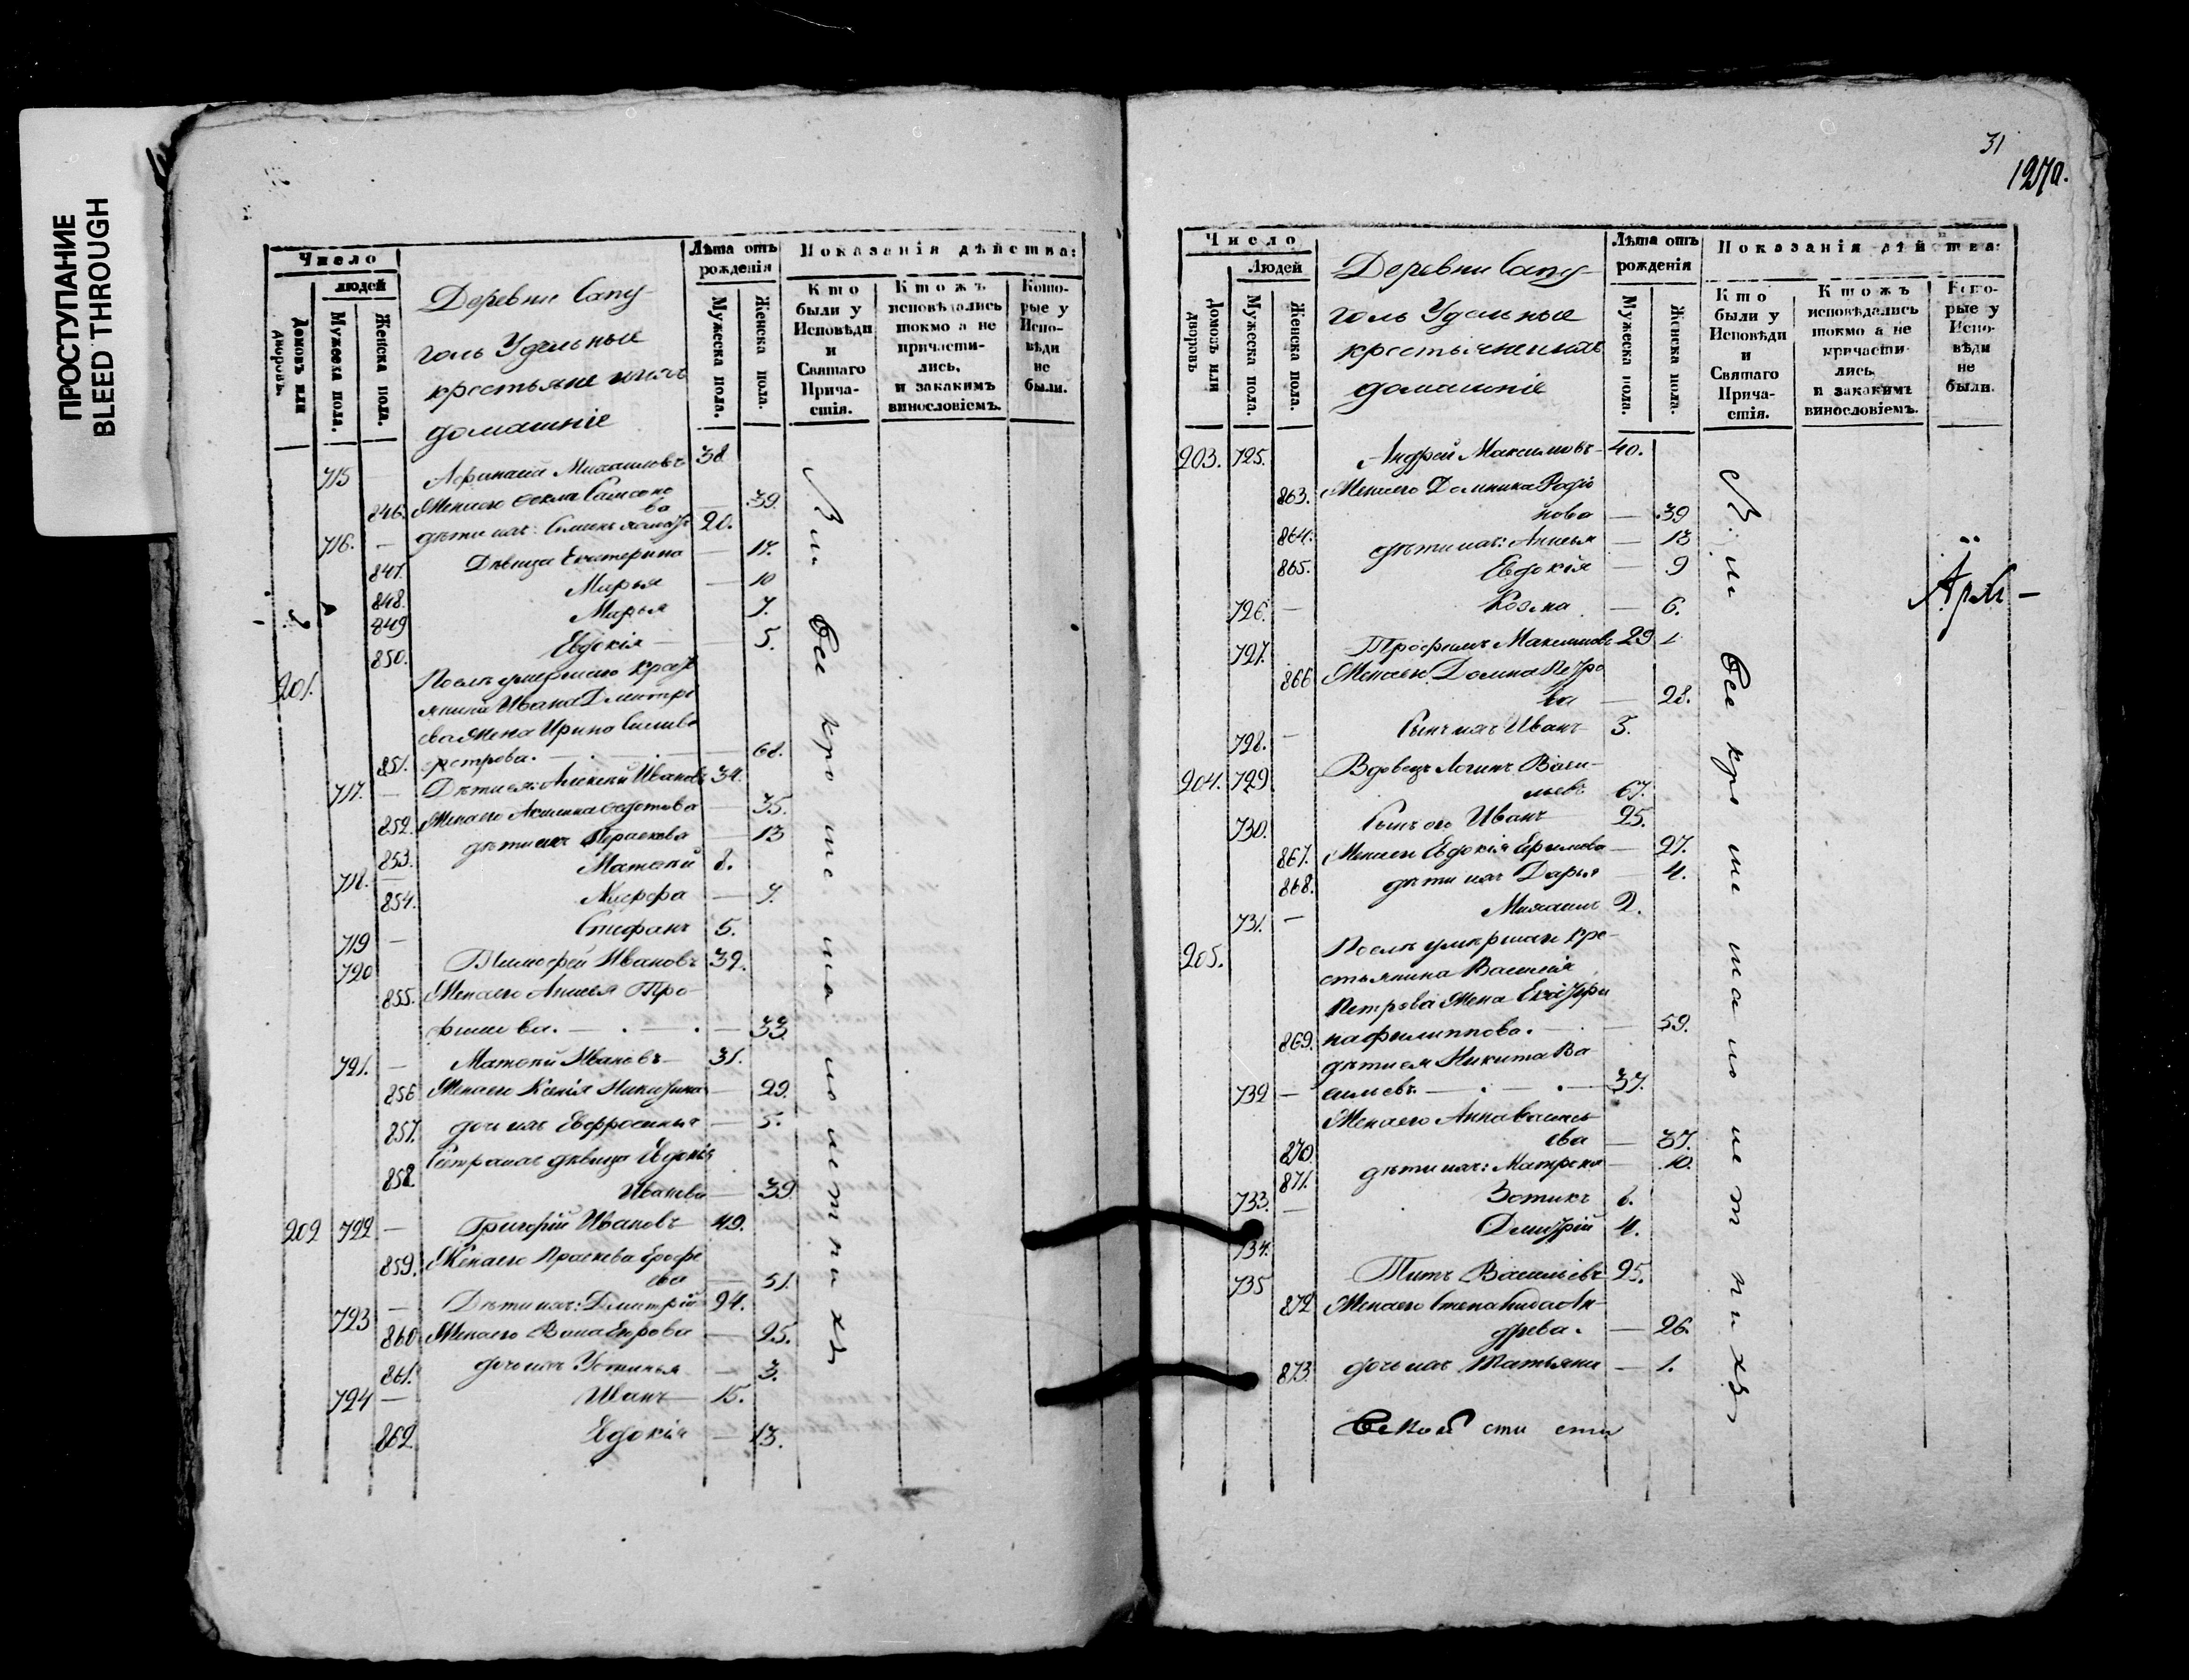 ПРОСТУПАНИЕ
BLEED THROUGH
Число
людей
Домовъ или дворовъ.
Мужеска пола.
Женска пола.
Деревни Сапу-
голь Удѣльные
крестьяне и ихъ
домашніе
Лѣта отъ рожденія
Мужеска пола.
Женска пола.
Показанія дѣйства:
Кто были у Исповѣди и Святаго Прича-стія.
Ктожъ исповѣдались токмо а не причасти-лись, и закакимъ винословіемъ.
Кото-рые у Испо-вѣди не были.
715 Афанасій Михаиловъ 38
846. Жена его Фекла Самсоно
ва — 39.
716. — дѣти ихъ: 20.
847. Дѣвица Екатерина — 17.
848. Марья — 10
849 Марья — 7.
850. Евдокія — 5.
201. Послѣ умершаго крест
янина Ивана Дмитрі
ева Жена Ирина Силиве
851. рстрова. — 68.
717. — Дѣти ея: Алексѣй Ивановъ 34.
852. Жена его Акилина Федотова — 35.
853. дѣти ихъ Параскева — 13
718. — Матвѣй 8.
854. Марфа — 7.
719 — Стефанъ 5.
720 Тимофей Ивановъ 32.
855. Жена его Анисья Тро-
фимова. — . — . — 33
721. — Матвѣй Ивановъ 31.
856 Жена его Ксенія Никитина — 29.
857. дочь ихъ Евфросинья — 5.
858 Сестра ихъ дѣвица Евдокія
Иванова — 39
202 722 — Григорій Ивановъ 49.
859. Жена его Праскева Ерофе
ева — 51.
723 — Дѣти ихъ: Димитрій 24.
860 Жена его Егорова — 25.
861. дочь ихъ Устинья — 3.
724 — Иванъ 15.
862 Евдокія — 13.
Всѣ кро ше
31
1257а.
Число
Людей
Домовъ или дворовъ
Мужеска пола.
Женска пола.
Деревни Сапу-
голь Удѣльные
крестьяне и ихъ
домашніе
Лѣта отъ рожденія
Мужеска пола.
Женска пола.
Показанія дѣйства:
Кто были у Исповѣди и Святаго Прича-стія.
Ктожъ исповѣдались токмо а не причасти-лись, и закакимъ винословіемъ.
Кото-рые у Испо-вѣди не были.
203. 725. Андрей Максимовъ 40.
863. Жена его Домника Родіо
нова — 39
864. дѣти ихъ: Анисья — 13
865. Евдокія — 9
726. — Козма — 6.
727. Трофимъ Максимовъ 29
866 Жена его Домна Петро
ва — 28.
728. — Сынъ ихъ Иванъ 3.
204. 729 Вдовецъ Логинъ Васи-
льевъ 67.
730. Сынъ его Иванъ 25.
867. Жена его Евдокія Ефимова — 27.
868. дѣти ихъ Дарья — 4.
731. — Михаилъ 2.
205. Послѣ умершаго кре-
стьянина Василія
Петрова Жена Екатери
869. на Филиппова. — 59.
дѣти ея Никита Ва
732 — сильевъ — . — . — 37.
Жена его Анна Василь
870 ева — 37.
871. дѣти ихъ: Матрена — 10.
733. — Зотикъ 6.
734. Димитрій 4.
735 Титъ Васильевъ 25.
872 Жена его Степанида Ан-
дреева. — 26.
873. дочь ихъ Татьяна — 1.
Всѣ кро ше